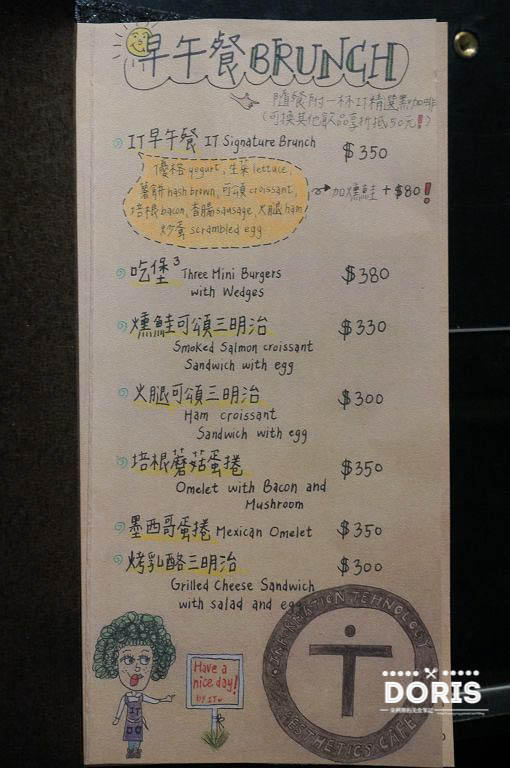 早午餐 BRUNCH
隨餐附一杯IT精選黑咖啡
(可換其他飲品享折抵50元!)
IT早午餐 IT Signature Brunch $350
優格 yogurt, 生菜 lettuce,
薯餅 hash brown, 可頌 croissant,
培根 bacon, 香腸 sausage, 火腿 ham
炒蛋 scrambled egg
加燻鮭 + $80!
吃堡3 Three Mini Burgers $380
with Wedges
燻鮭可頌三明治 $330
Smoked Salmon croissant
Sandwich with egg
火腿可頌三明治 $300
Ham croissant
Sandwich with egg
培根蘑菇蛋捲 $350
Omelet with Bacon and
Mushroom
墨西哥蛋捲 Mexican Omelet $350
烤乳酪三明治 $300
Grilled Cheese Sandwich
with salad and egg
Have a
nice day!
by IT
IT
TEHNOLOGY
AESTHETICS CAFE
DORIS